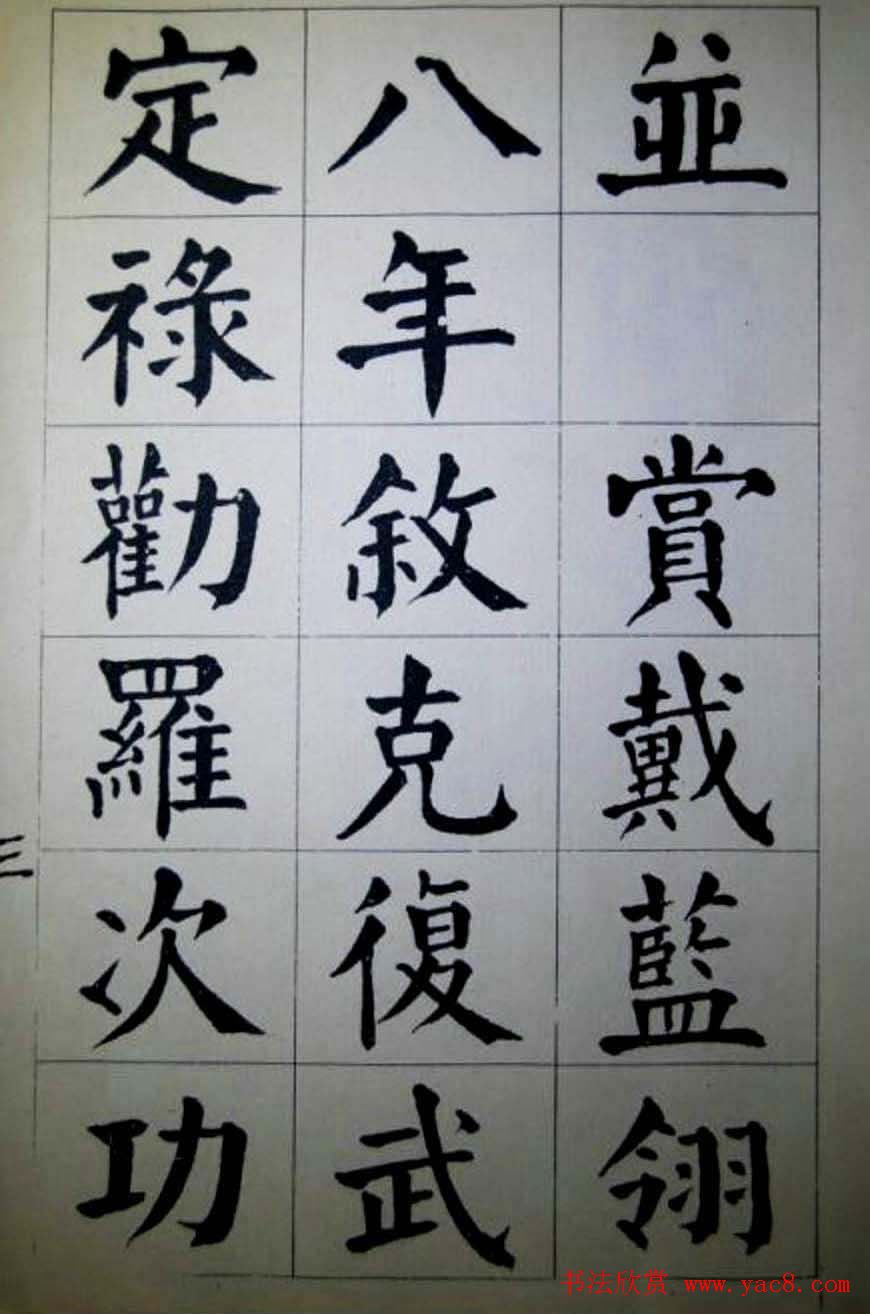 並賞戴藍翎
八年敘克復武
定祿勸羅次功
三
书法欣赏 www.yac8.com